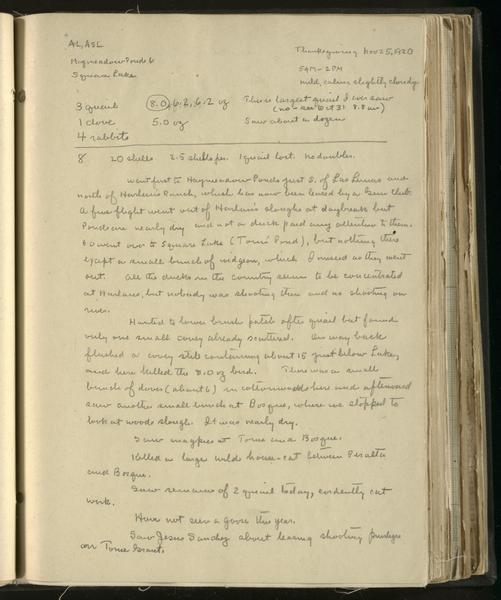 AL, ASL
Thanksgiving Nov 25, 1920
Haymeadow Ponds &
Square Lake
5 AM - 2 PM
mild, calm, slightly cloudy
3 quail (8.0), 6.2, 6.2 oz This is largest quail I ever saw
(no - see Oct 31 8.8 oz)
1 dove 5.0 oz Saw about a dozen
4 rabbits
8 20 shells 2.5 shells per. 1 quail lost. No doubles.
Went first to Haymeadow Ponds just S. of Los Lunas and
north of Harlan's Ranch, which has now been leased by a Gun Club.
A fine flight went out of Harlan's sloughs at daybreak but
Ponds are nearly dry and not a duck paid any attention to them.
So went over to Square Lake (Tome Pond), but nothing there
except a small bunch of widgeon, which I missed as they went
out. All the ducks in the country seem to be concentrated
at Harlans, but nobody was shooting them and no shooting on
river.
Hunted to lower brush patch after quail but found
only one small covey already scattered. On way back
flushed a covey still containing about 15 just below Lake,
and here killed the 8.0 oz bird. There was a small
bunch of doves (about 6) in cottonwoods here and afterward
saw another small bunch at Bosque, where we stopped to
look at woods slough. It was nearly dry.
Saw magpies at Tome and a Bosque.
Killed a large wild house-cat between Peralta
and Bosque.
Saw remains of 2 quail today, evidently cat
work.
Have not seen a goose this year.
Saw Jesus Sanchez about leasing shooting privileges
on Tome Grant.